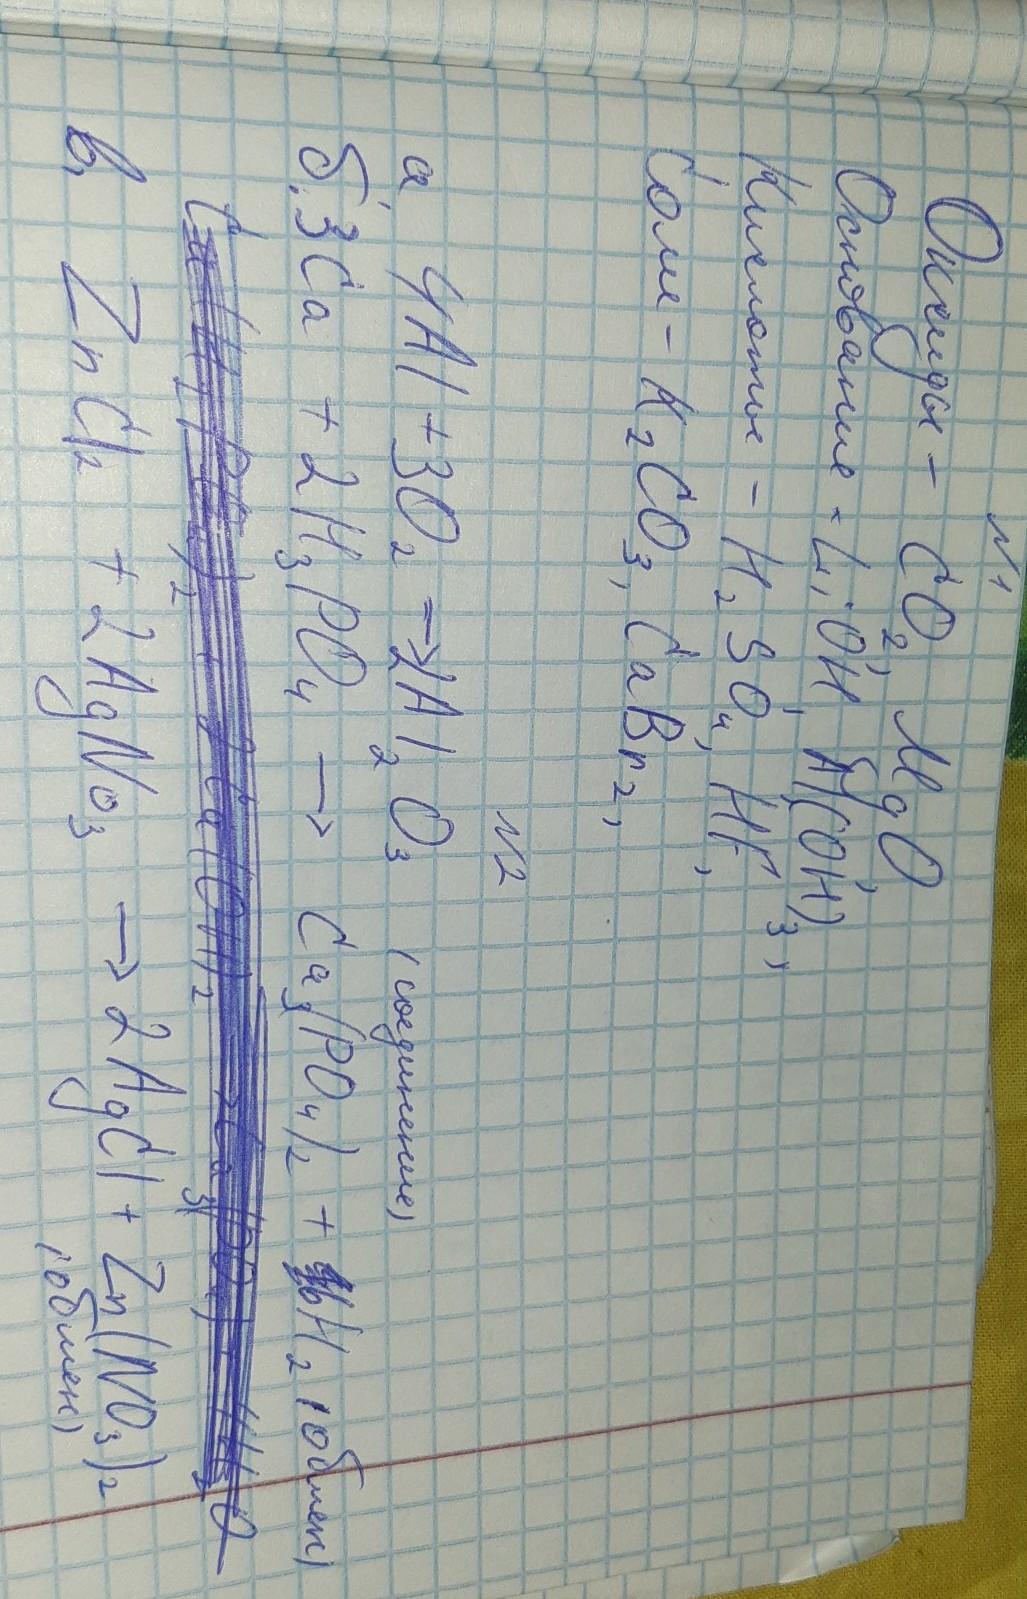 N1
Оксиды - CO2, MgO
Основание - LiOH, Al(OH)3,
Кислоты - H2SO4, HF,
Соли - K2CO3, CaBr2,
N2
а. 4Al + 3O2 → 2Al2O3 (соединение)
б. 3Ca + 2H3PO4 → Ca3(PO4)2 + H2 (обмен)
в. ZnCl2 + 2AgNO3 → 2AgCl + Zn(NO3)2
(обмен)